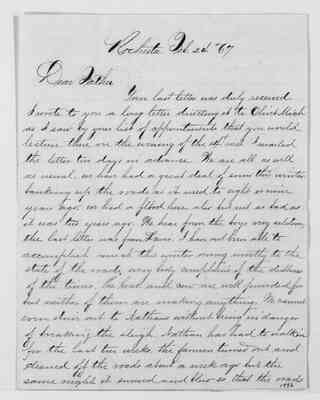 Rochester Feb 24th 67
Dear Father
Your last letter was duly received
I wrote to you a long letter directing it to Mich
as I saw by your list of appointments that you would
lecture there on the evening of the inst I mailed
the letter ten days in advance. We are all as well
as usual, we have had a great deal of snow this winter
banking up the roads as it used to eight or nine
years ago. we had a flood here also but not as bad as
it was two years ago. We hear from the boys very seldom,
the last letter was from I have not been able to
accomplish much this winter owing mostly to the
state of the roads, every body complains of the dullness
of the times, the horse and cow are well provided for
but neither of them are making anything. We cannot
even stir out to Nathans without being in danger
of breaking the sleigh. Nathan has had to walk in
for the last two weeks. the farmers turned out and
cleaned off the roads about a week ago but the
same night it snowed and blew so that the roads